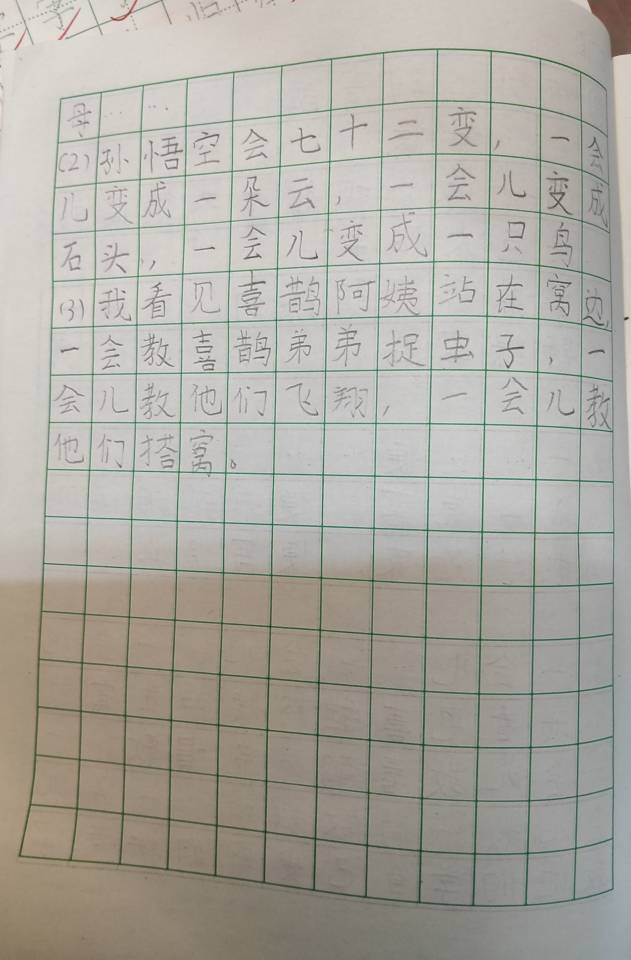 母……
(2)孙悟空会七十二变，一会
儿变成一朵云，一会儿变成
石头，一会儿变成一只鸟
(3)我看见喜鹊阿姨站在窝边，
一会教喜鹊弟弟捉虫子，一
会儿教他们飞翔，一会儿教
他们搭窝。